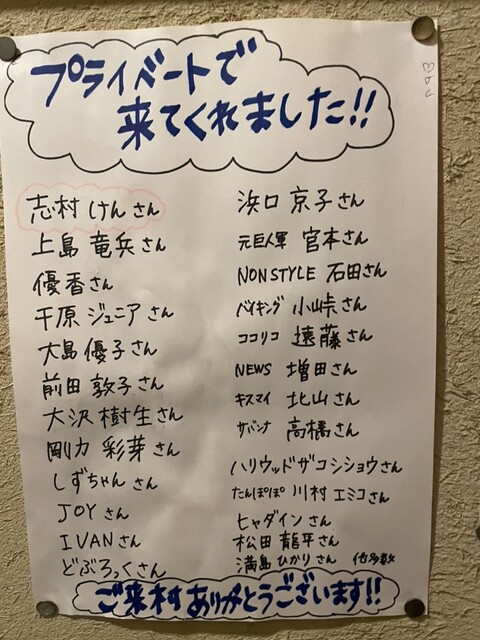 プライベートで
来てくれました!!
志村 けん さん
上島 竜兵 さん
優香 さん
千原 ジュニア さん
大島 優子 さん
前田 敦子 さん
大沢 樹生 さん
剛力 彩芽 さん
しずちゃん さん
JOY さん
IVAN さん
どぶろっくさん
浜口 京子 さん
元巨人軍 宮本 さん
NON STYLE 石田 さん
バイキング 小峠 さん
ココリコ 遠藤 さん
NEWS 増田 さん
キスマイ 北山 さん
サバンナ 高橋 さん
ハリウッドザコシショウ さん
たんぽぽ 川村 エミコ さん
ヒャダイン さん
松田 龍平 さん
満島 ひかり さん 他多数
ご来村ありがとうございます!!